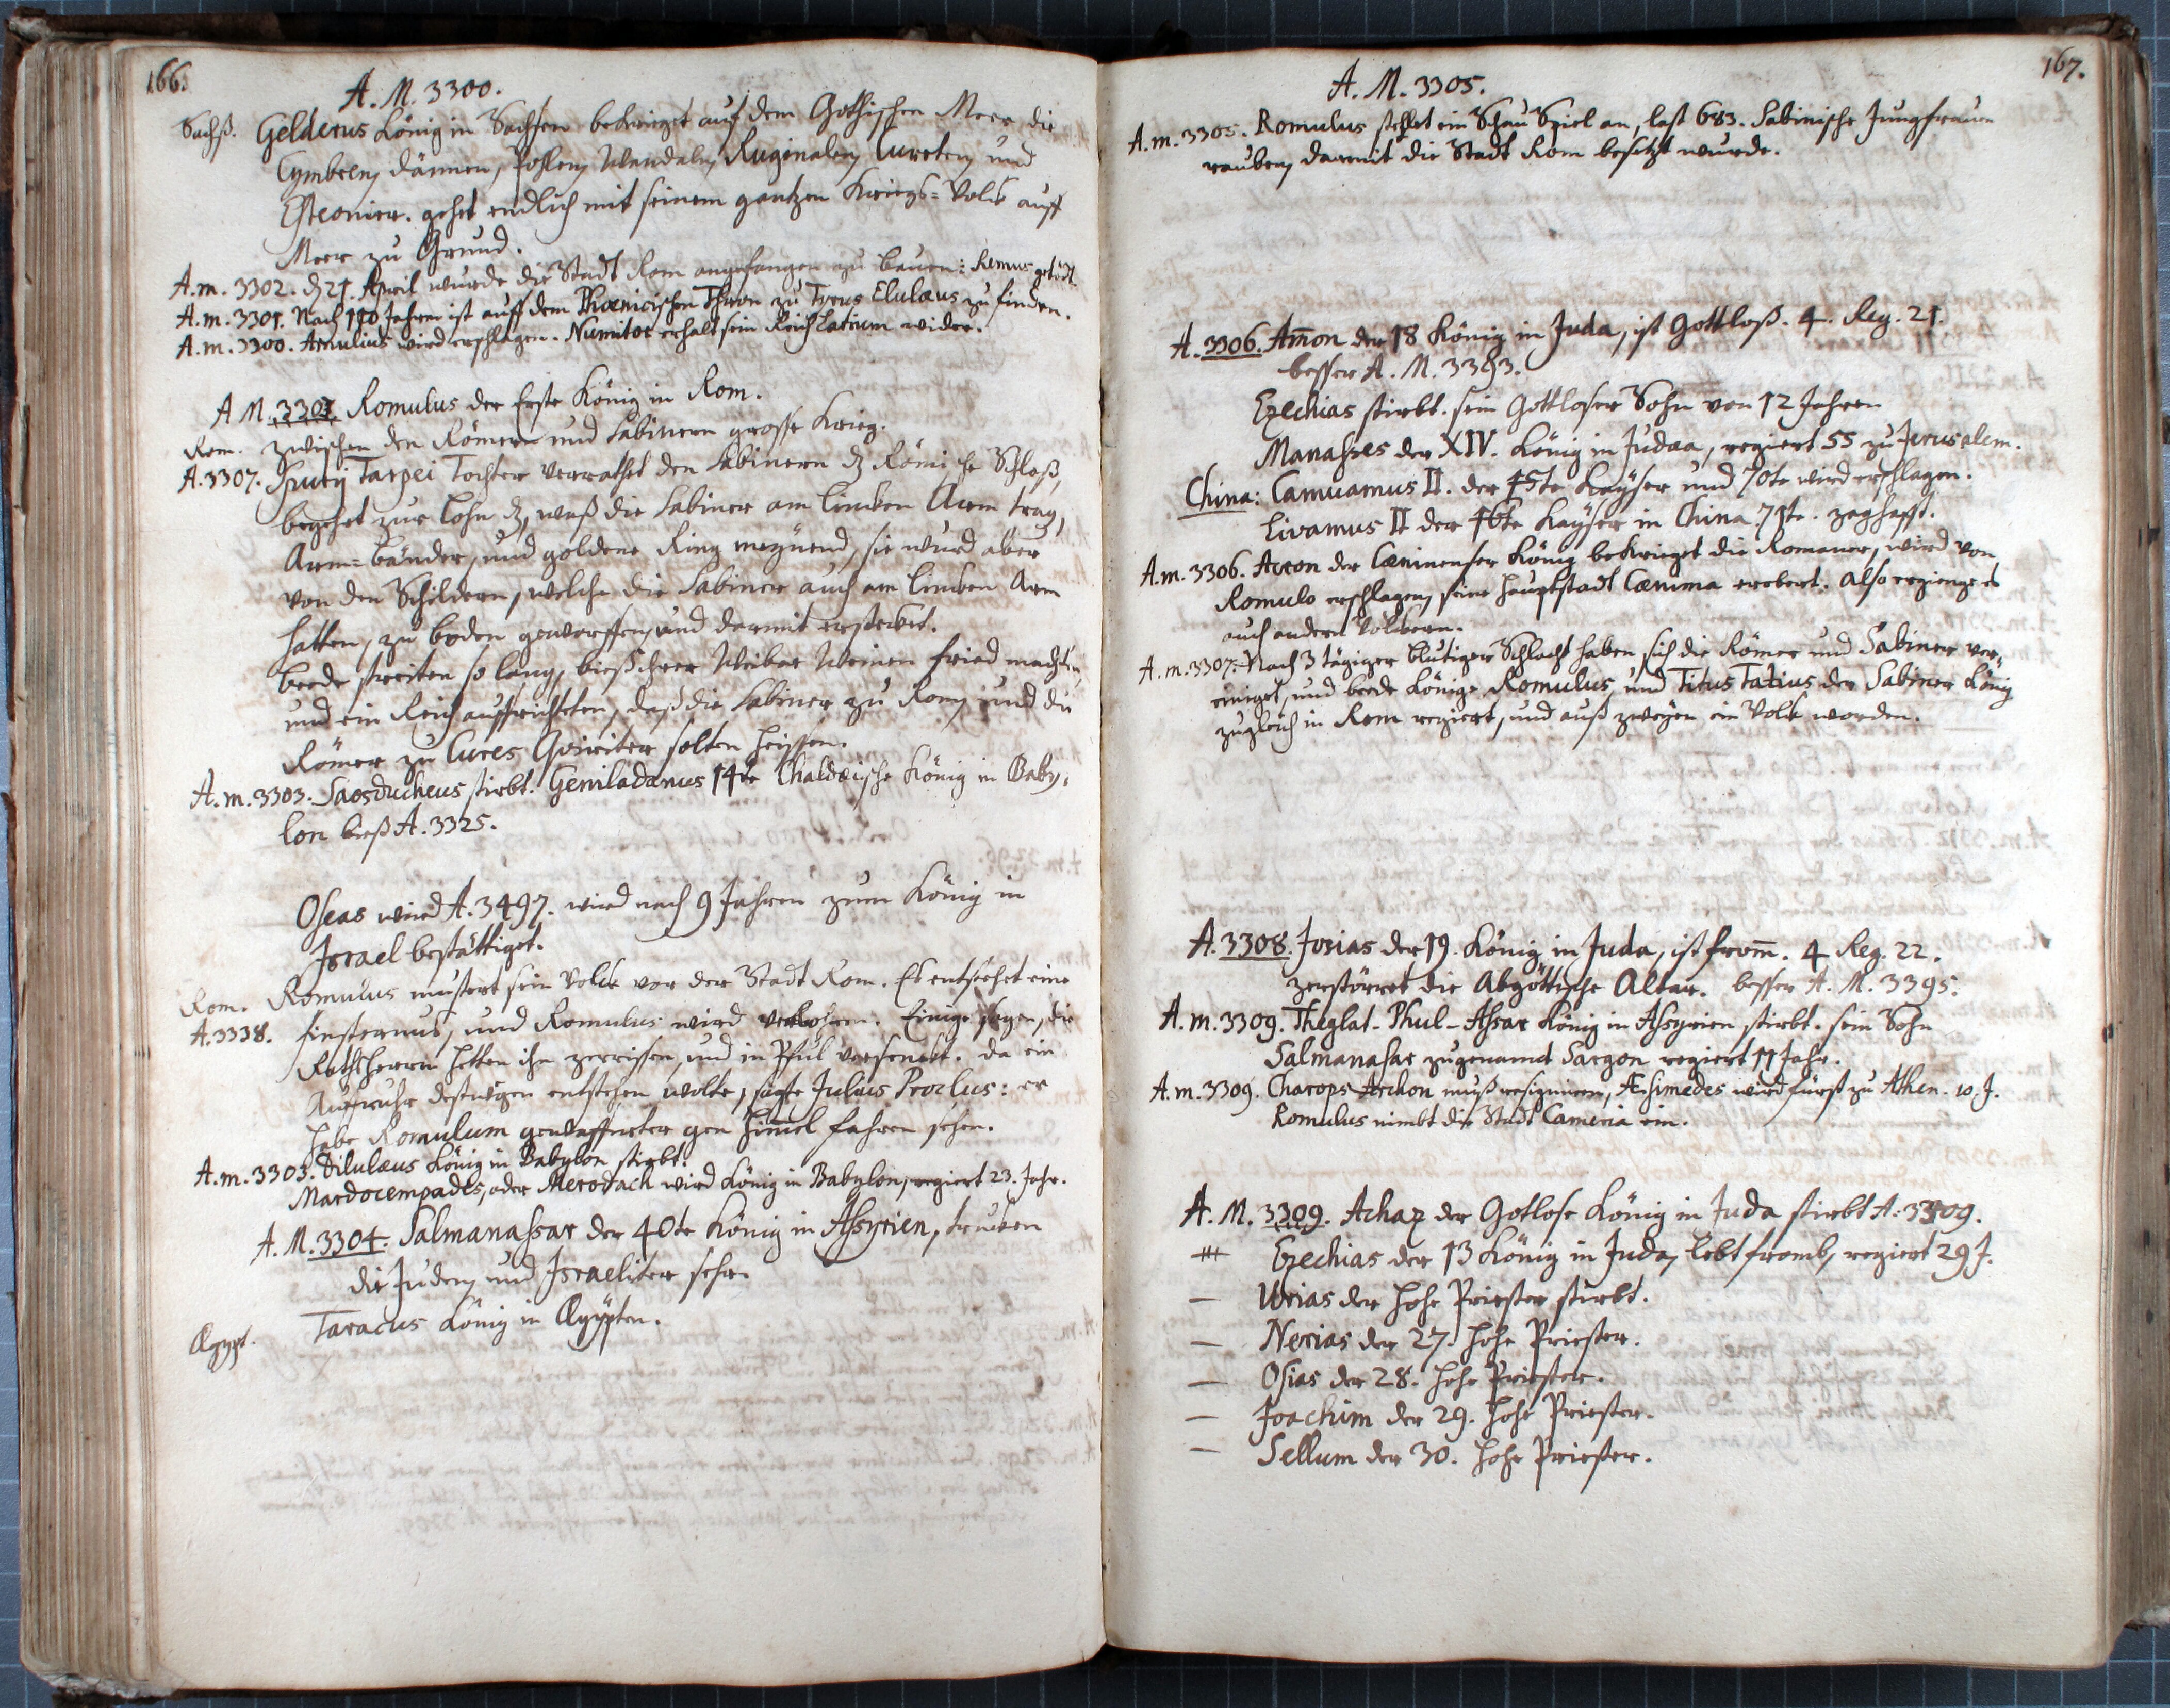 166.
A. M. 3300.
Sachß. Gelderus König in Sachsen bekrieget auf dem Gothischen Meer die
Cymbren, Dännen, Pohlen, Wandalen, Ruginalen, Cureten, und
Esteonier. gehet endlich mit seinem gantzen Kriegs=Volck auff
Meer zu Grund.
A.m. 3302. dz 21. April wurde die Stadt Rom angefangen zu bauen: Remus getödt.
A.m. 3301. Nach 190 Jahren ist auff dem Phœnicischen Thron zu Tyrus Elulæus zu finden.
A.m. 3300. Amulius wird erschlagen. Numitor erhalt sein Reich Latium wider.
A M. 3301. Romulus der Erste König in Rom.
Rom. zwischen den Römern und Sabinern grosse Krieg.
A. 3307. Spurij Tarpei Tochter verrathet den Sabinern dz Römische Schloß,
begehrt zur Lohn dz, waß die Sabiner am lincken Arm trag,
Arm=bänder, und goldene Ring meynend, sie wurd aber
von den Schildern, welche die Sabiner auch am lincken Arm
hatten, zu boden geworffen, und darmit erstecket.
beede streiten so lang, bieß ihrer Weiber Weinen fried machten,
und ein Reich auffrichteten, daß die Sabiner zu Rom, und die
Römer zu Cures Quiriter solten heissen.
A. m. 3303. Saosducheus stirbt. Geniladanus 14te Chaldæische König in Baby=
lon bieß A. 3325.
Oseas wird A. 3497. wird nach 9 Jahren zum König in
Israel bestättiget.
Rom. Romulus mustert sein Volck vor der Stadt Rom. Es entstehet eine
A. 3338. finsternus, und Romulus wird verlohren. Einige sagen, die
Rathsherrn hetten ihn zerrissen, und in Pful versenckt. da ein
Auffruhr destwegen entstehen wolte, sagte Julius Proclus: er
habe Romulum gewaffneter gen Himmel fahren sehen.
A. m. 3303. Dilulæus König in Babylon stirbt.
Mardocempades, oder Merodach wird König in Babylon, regiert 23. Jahr.
A. M. 3304. Salmanassar der 40te König in Assyrien, trucken
die Juden, und Israeliter sehr.
Ægypt. Taracus König in Ægÿpten.
167.
A. M. 3305.
A. m. 3305. Romulus stehlet ein Schau Spiel an, last 683. Sabinische Jungfrauen
rauben, darmit die Stadt Rom besetzt wurde.
A. 3306. Am̄on der 18 König in Juda, ist Gottloß. 4. Reg. 21.
besser A. M. 3393.
Ezechias stirbt. sein Gottloser Sohn von 12 Jahren
Manasses der XIV. König in Judæa, regiert 55 zu Jerusalem.
China: Camuamus II. der 45te Kayser und 70te wird erschlagen.
Livamus II der 46te Kayser in China 71te. zaghafft.
A. m. 3306. Acron der Cæninenser König bekrieget die Romaner, wird von
Romulo erschlagen, seine Hauptstadt Cænima erobert. Also ergienge es
auch andern Völckern.
A. m. 3307. Nach 3 tägiger blutiger Schlacht haben sich die Römer und Sabiner ver=
einiget, und beede Könige Romulus, und Titus Tatius der Sabiner König
zugleich in Rom regiert, und auß zweÿen ein Volck worden.
A. 3308. Josias der 19. König in Juda, ist from̄. 4 Reg. 22.
zerstörret die Abgöttische Altar. besser A. M. 3395.
A. m. 3309. Theglat-Phul-Assar König in Assyrien stirbt. sein Sohn
Salmanassar zugenamd Sargon regiert 11 Jahr.
A. m. 3309. Charops Archon muß resigniren, Æsimedes wird fürst zu Athen. 10. J.
Romulus nimbt die Stadt Cameria ein.
A. M. 3309. Achaz der Gotlose König in Juda stirbt A. 3309.
Ezechias der 13 König in Juda, lebt fromb, regiert 29 J.
— Urias der hohe Priester stirbt.
— Nerias der 27. hohe Priester.
— Osias der 28. hohe Priester.
— Joachim der 29. hohe Priester.
— Sellum der 30. hohe Priester.